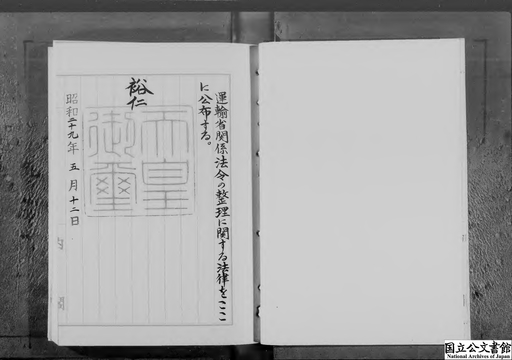 運輸省関係法令の整理に関する法律をここ
に公布する。
裕仁
天皇御璽
昭和二十九年五月十二日
国立公文書館
National Archives of Japan